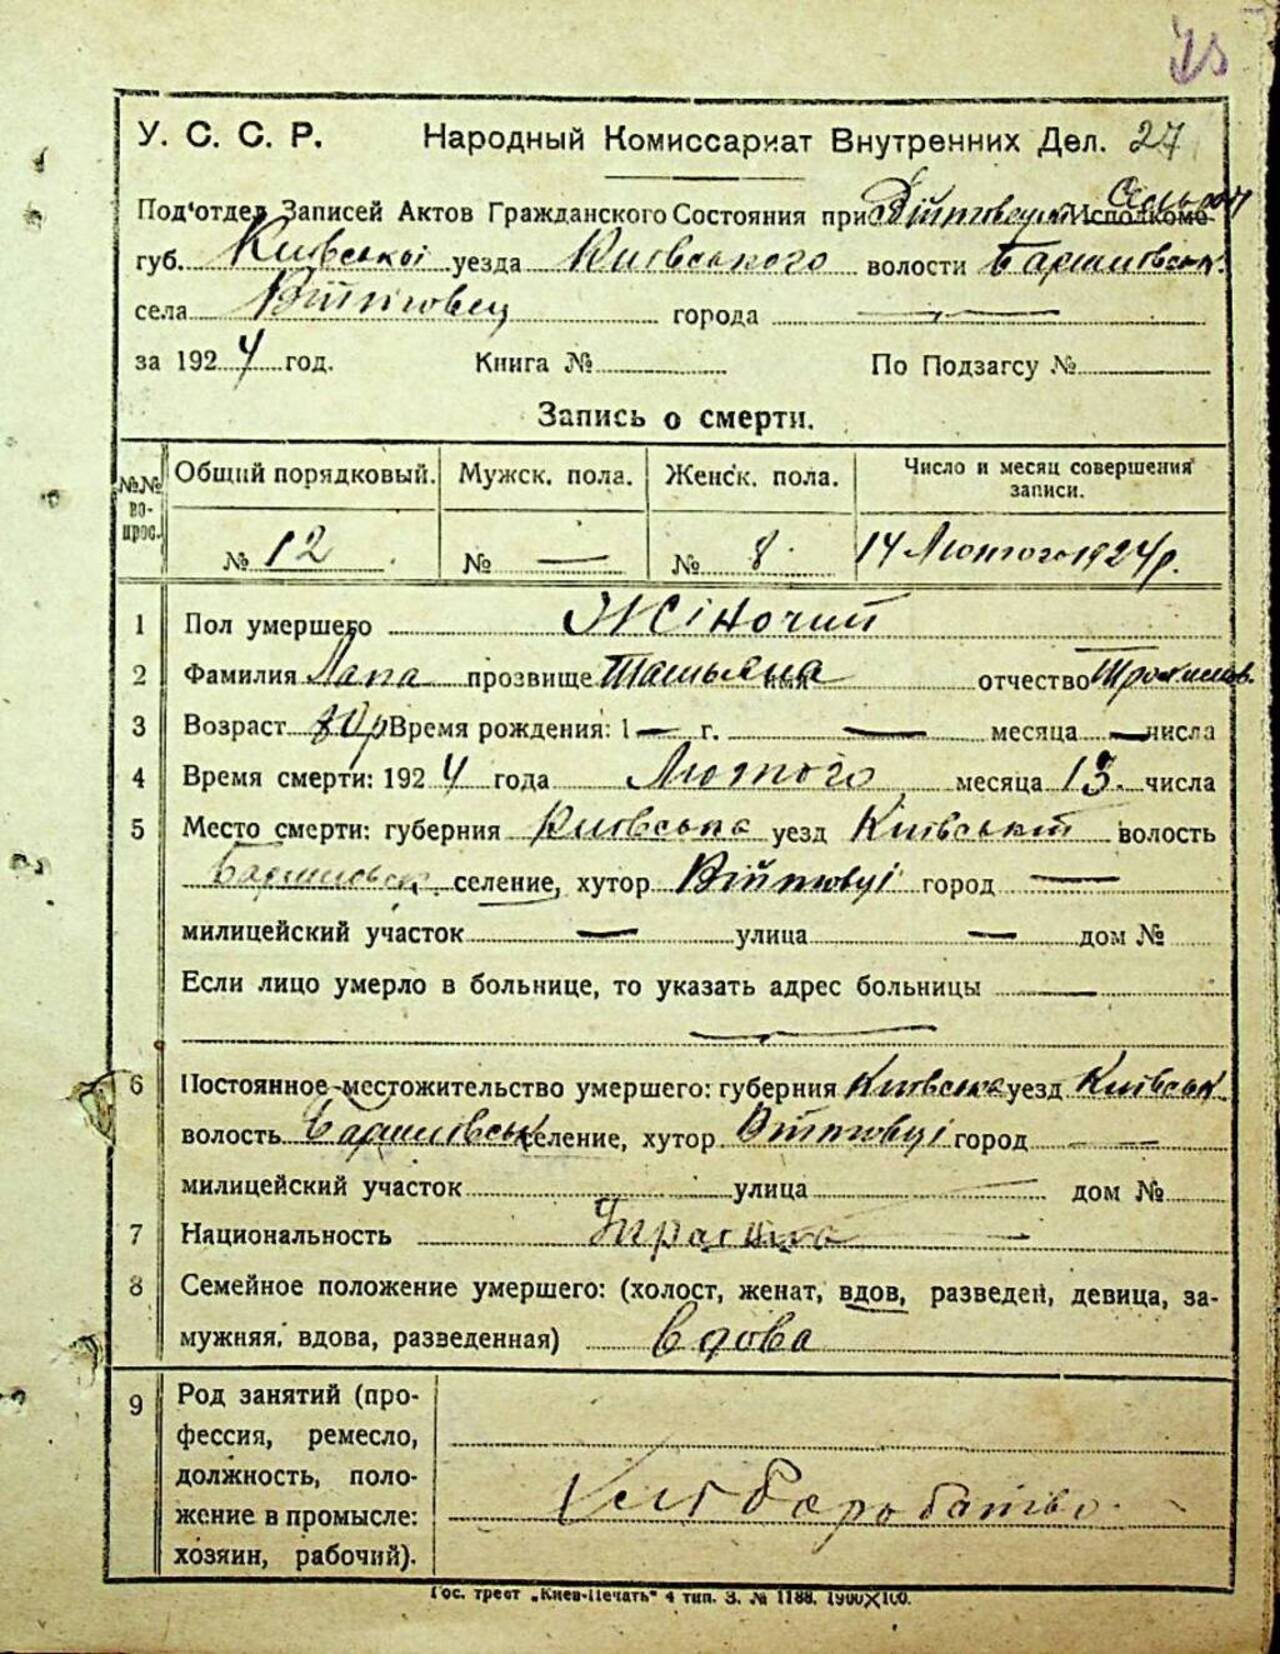 У. С. С. Р. Народный Комиссариат Внутренних Дел. 27
Под'отдел Записей Актов Гражданского Состояния при Исполкоме
губ. Київської уезда Київського волости
села города —
за 1924 год. Книга № По Подзагсу №
Запись о смерти.
№№ вопрос. Общий порядковый. Мужск. пола. Женск. пола. Число и месяц совершения записи.
№ 12 № — № 8. 14 Лютого 1924 р.
1 Пол умершего Жіночий
2 Фамилия Лапа прозвище отчество
3 Возраст 80 р Время рождения: 1— г. — месяца — числа
4 Время смерти: 1924 года Лютого месяца 13. числа
5 Место смерти: губерния Київська уезд Київський волость
селение, хутор Війтовці город —
милицейский участок — улица — дом №
Если лицо умерло в больнице, то указать адрес больницы —
—
6 Постоянное местожительство умершего: губерния Київська уезд Київськ.
волость селение, хутор Війтовці город —
милицейский участок улица — дом №
7 Национальность
8 Семейное положение умершего: (холост, женат, вдов, разведен, девица, за-
мужняя, вдова, разведенная) Вдова
9 Род занятий (про-
фессия, ремесло,
должность, поло-
жение в промысле:
хозяин, рабочий).
Гос. трест „Киев-Печать" 4 тип. З. № 1188. 1900×100.